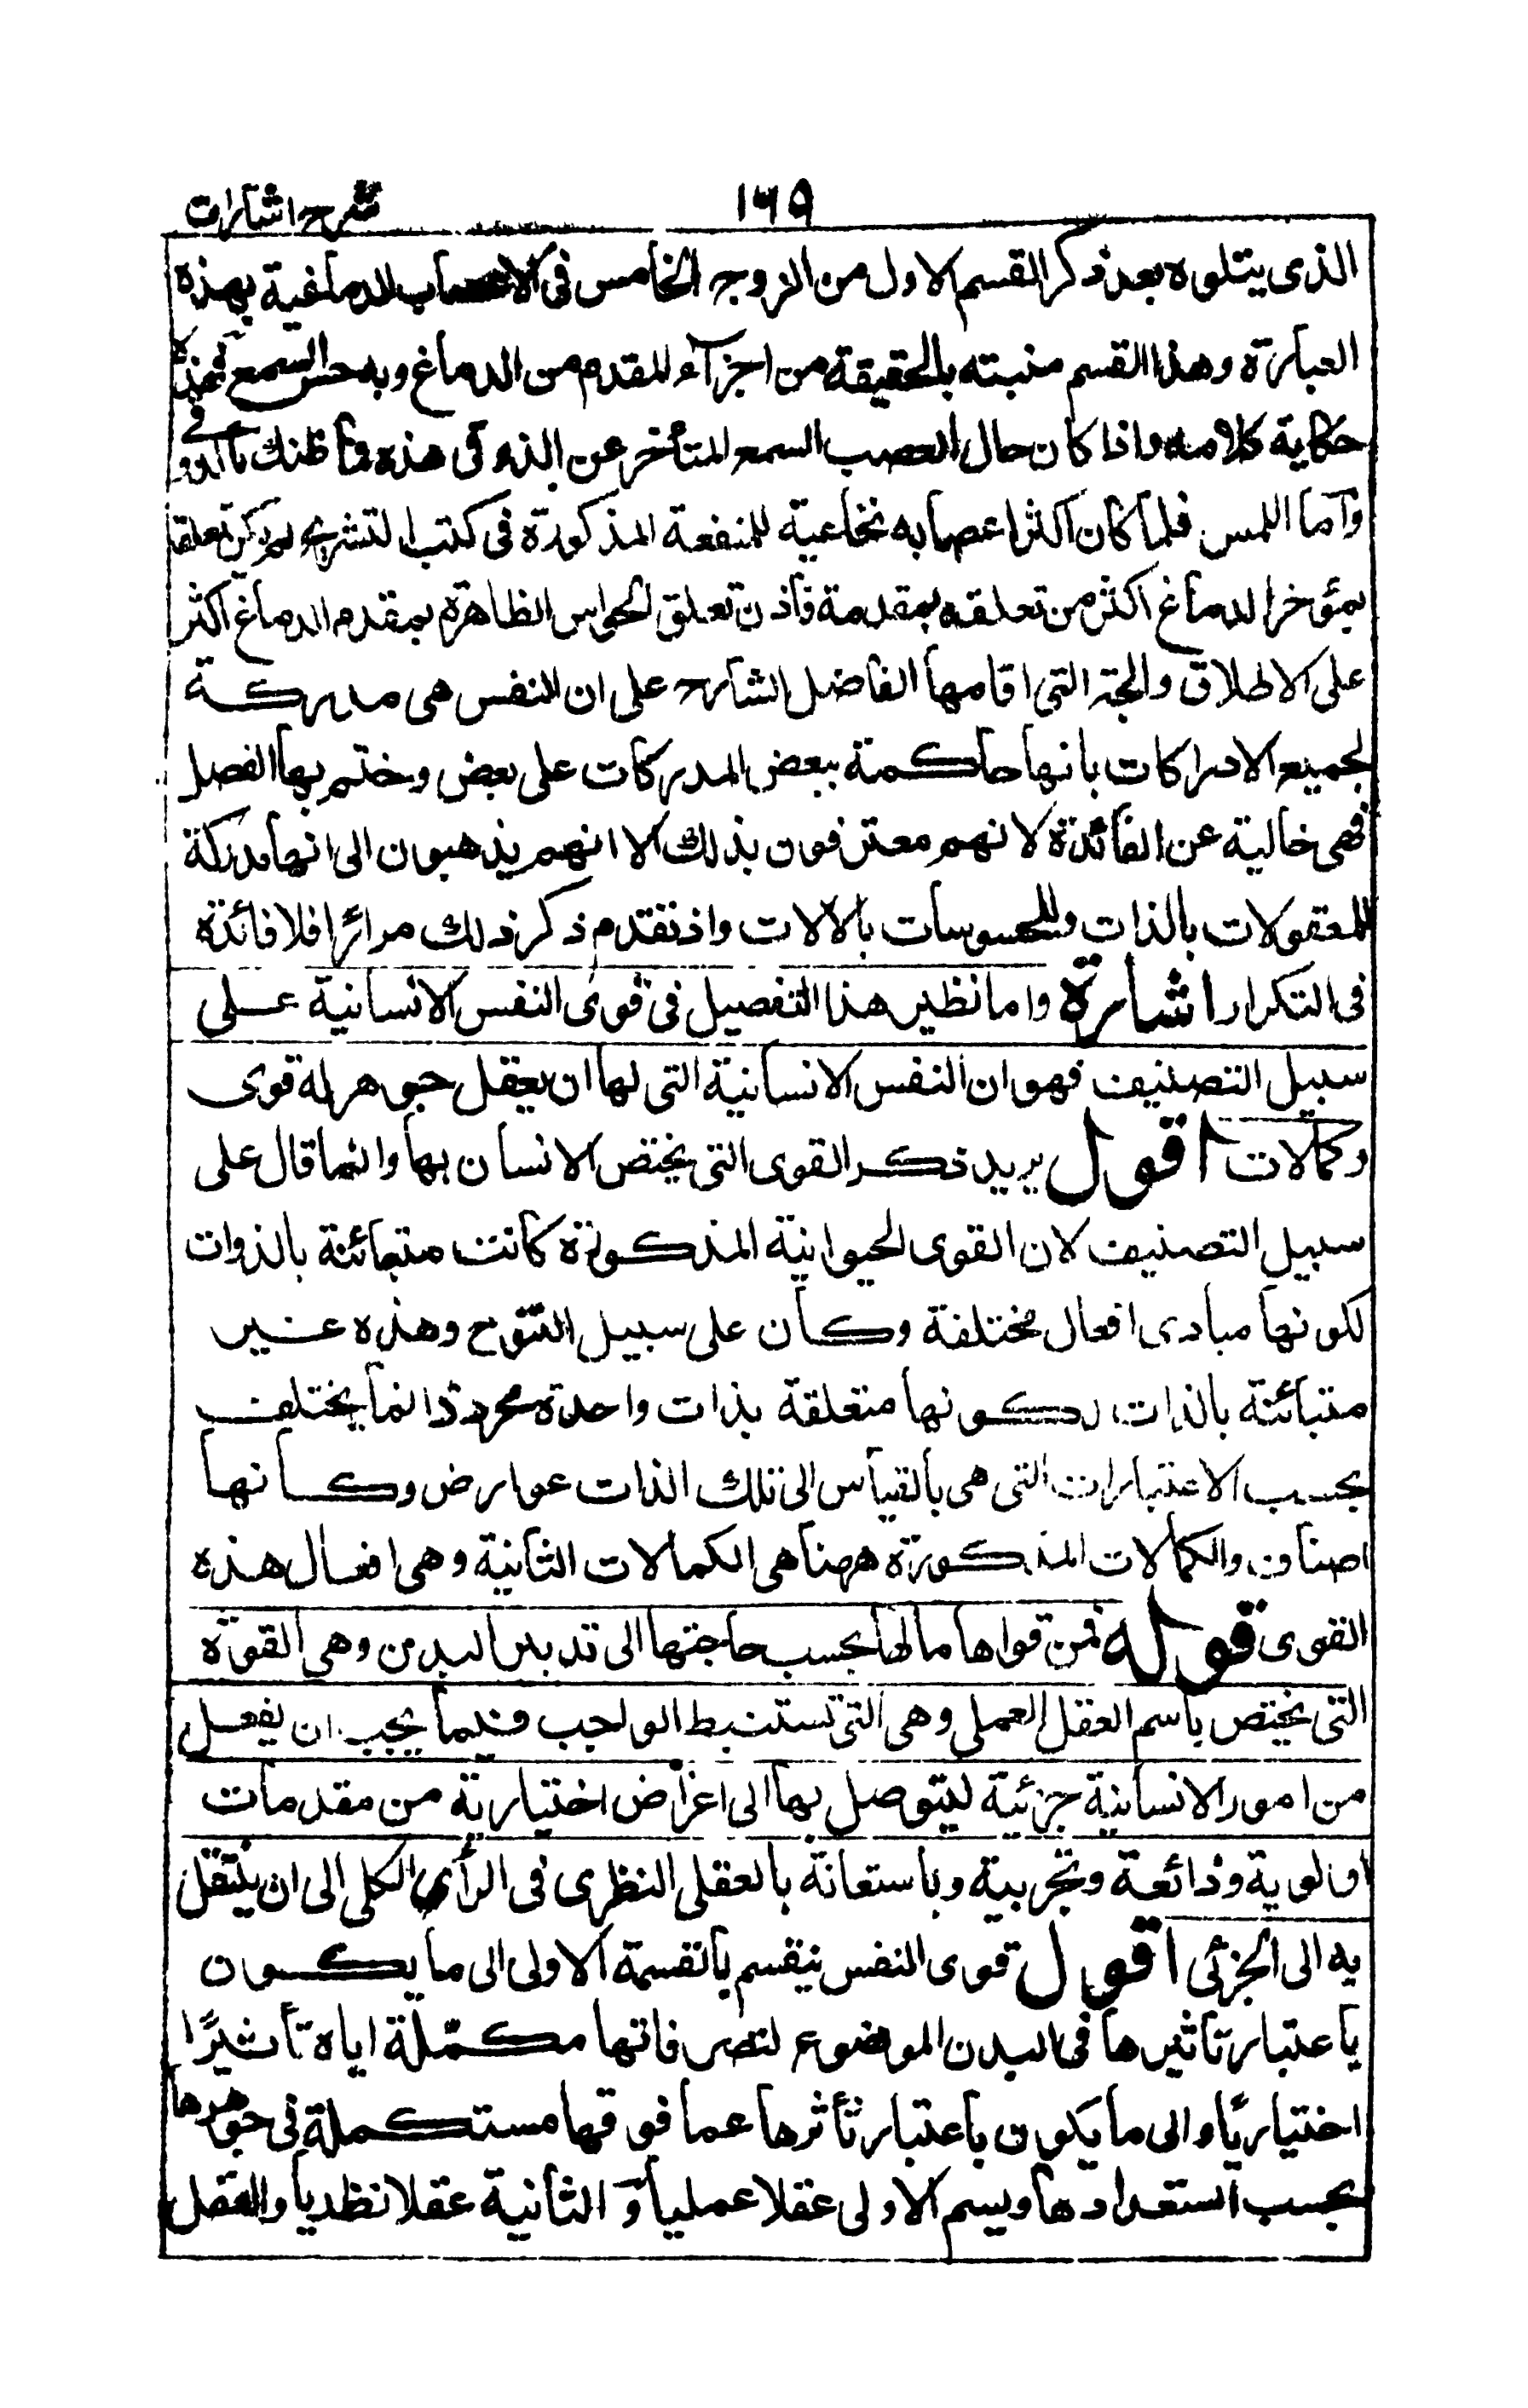 ١٦٩ شرح اشارات
الذى يتلوه بعد ذكر القسم الاول من الزوج الخامس فى الاعصاب الدماغية بهذه
العبارة وهذا القسم منبته بالحقيقة من اجزآء المقدم من الدماغ وبه حس السمع فهذه
حكاية كلامه واذا كان حال العصب السمع المتأخر عن الذوق هذه فما ظنك بالذوق
وآما اللمس فلما كان اكثر اعصابه نخاعية للمنفعة المذكورة فى كتب التشريح لم يكن تعلقه
بمؤخر الدماغ اكثر من تعلقه بمقدمة فأذن تعلق الحواس الظاهرة بمقدم الدماغ اكثر
على الاطلاق والحجة التى اقامها الفاضل الشارح على ان النفس هى مدركة
لجميع الادراكات بانها حاكمة ببعض المدركات على بعض وختم بها الفصل
فهى خالية عن الفائدة لانهم معترفون بذلك الا انهم يذهبون الى انها مدركة
للمعقولات بالذات وللمحسوسات بالآلات واذ تقدم ذكر ذلك مرارًا فلا فائدة
فى التكرار اشارة واما نظير هذا التفصيل فى قوى النفس الانسانية على
سبيل التصنيف فهو ان النفس الانسانية التى لها ان يعقل جوهر له قوى
وكمالات اقول يريد ذكر القوى التى يختص الانسان بها وانما قال على
سبيل التصنيف لان القوى الحيوانية المذكورة كانت متبائنة بالذوات
لكونها مبادى افعال مختلفة وكان على سبيل التنوع وهذه غير
متبائنة بالذات لكونها متعلقة بذات واحدة مجردة وانما يختلف
بحسب الاعتبارات التى هى بالقياس الى تلك الذات عوارض وكانها
اصناف والكمالات المذكورة ههنا هى الكمالات الثانية وهى افعال هذه
القوى قوله فمن قواها مالها بحسب حاجتها الى تدبير البدن وهى القوة
التى يختص باسم العقل العملى وهى التى تستنبط الواجب فيما يجب ان يفعل
من امور الانسانية جزئية ليتوصل بها الى اغراض اختيارية من مقدمات
اولوية وذائعة وتجربية وباستعانة بالعقل النظرى فى الرأى الكلى الى ان ينتقل
به الى الجزئى اقول قوى النفس ينقسم بالقسمة الاولى الى ما يكون
باعتبار تاثيرها فى البدن الموضوع لتصرفاتها مكمّلة اياه تأثيرًا
اختياريًا والى ما يكون باعتبار تأثرها عما فوقها مستكملة فى جوهرها
بحسب استعدادها ويسم الاولى عقلا عمليا و الثانية عقلا نظريا والعقل